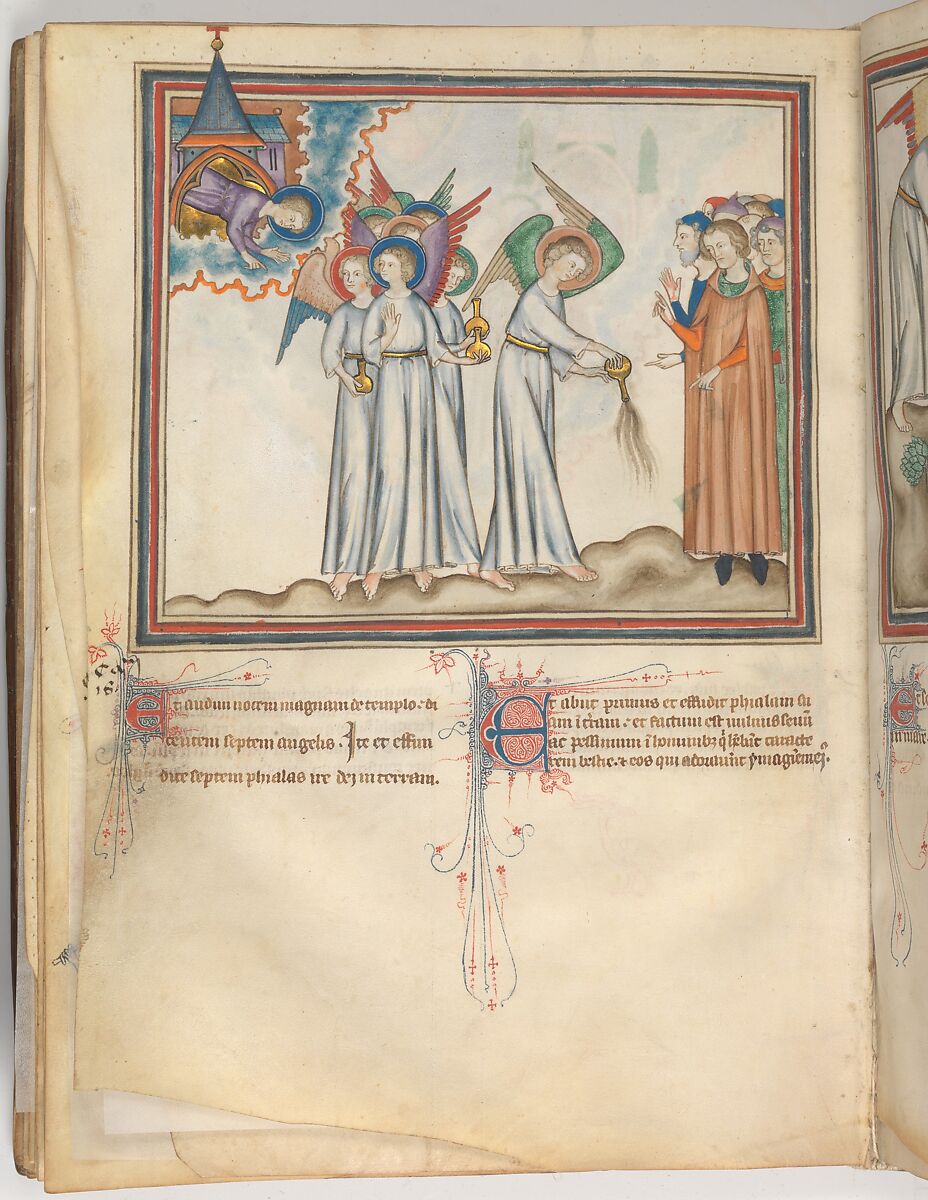 Et audiui uocem magnam de templo. di
centem septem angelis. Ite et effun
dite septem phialas ire dei in terram.
Et abiit primus et effudit phialam su
am i tram. et factum est uulnus seuum
ac pessimum i hominibz q hebnt caracte
rem bestie. et eos qui adorauert ymaginem eius.